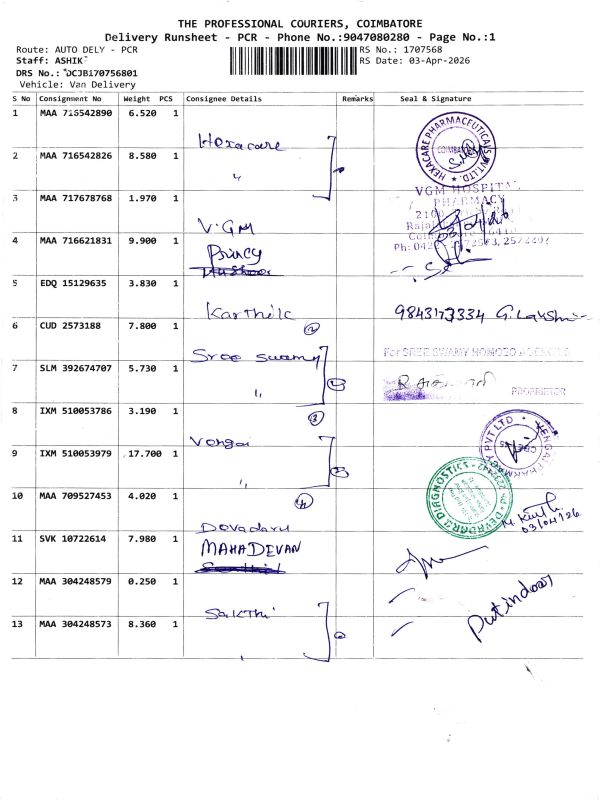 THE PROFESSIONAL COURIERS, COIMBATORE
Delivery Runsheet - PCR - Phone No.:9047080280 - Page No.:1
Route: AUTO DELY - PCR
RS No.: 1707568
Staff: ASHIK
RS Date: 03-Apr-2026
DRS No.: DCJB170756801
Vehicle: Van Delivery
S No Consignment No Weight PCS Consignee Details Remarks Seal & Signature
1 MAA 716542890 6.520 1 Hexacare
HEXACARE PHARMACEUTICALS PVT.LTD.
2 MAA 716542826 8.580 1 "
3 MAA 717678768 1.970 1 V.GM
VGM HOSPITAL
PHARMACY
4 MAA 716621831 9.900 1 Princy
5 EDQ 15129635 3.830 1 Karthik
9843173334 G. Lakshmi
6 CUD 2573188 7.800 1 Sree Swamy
For SREE SWAMY HOMOEO AGENCIES
7 SLM 392674707 5.730 1 "
PROPRIETOR
8 IXM 510053786 3.190 1 Vengai
VENGAI PHARMACY PVT LTD
9 IXM 510053979 17.700 1
10 MAA 709527453 4.020 1 Devadaru
DEVADARU DIAGNOSTIKS
03/04/26
11 SVK 10722614 7.980 1 MAHADEVAN
12 MAA 304248579 0.250 1 Sakthi
Put indoor
13 MAA 304248573 8.360 1 "